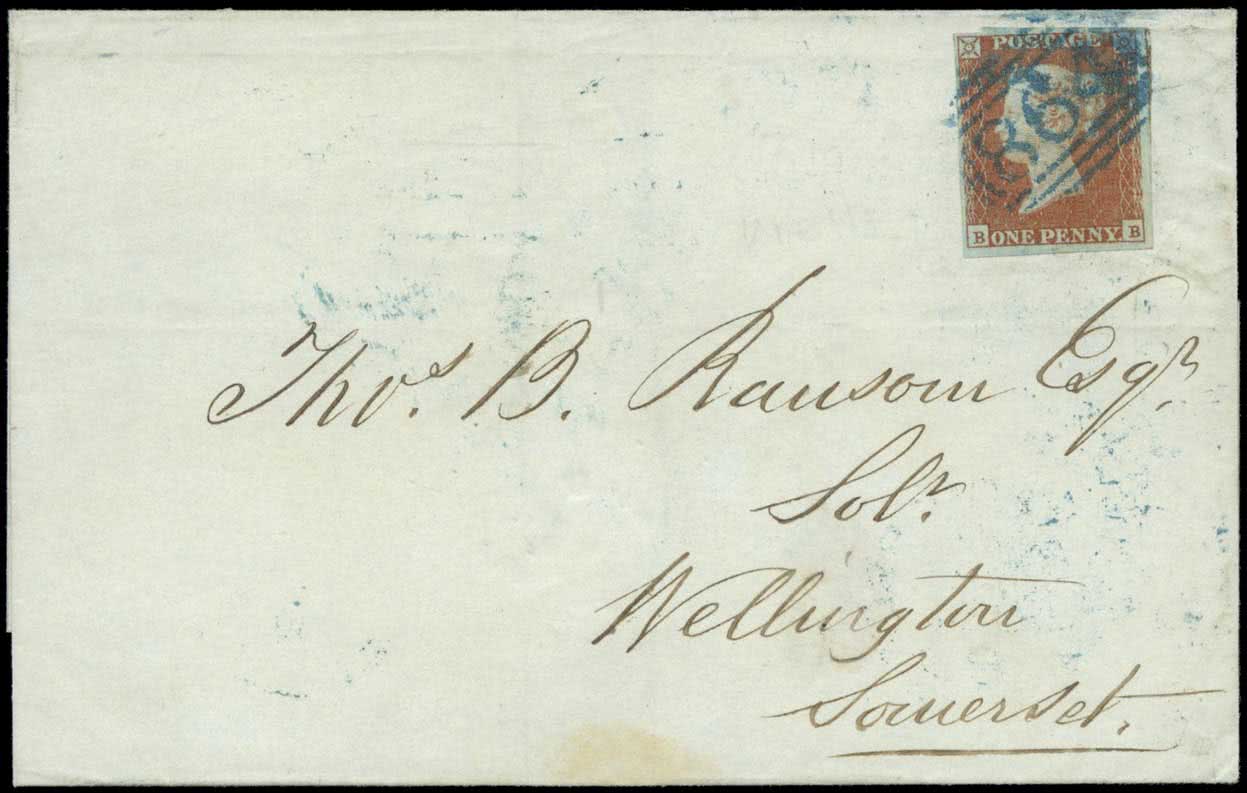 POSTAGE
B ONE PENNY B
Thos. B. Ransom Esqr.
Solr.
Wellington
Somerset.